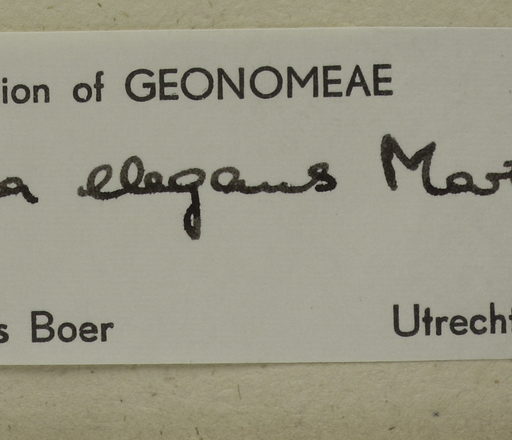 ion of GEONOMEAE
a elegans Mart
s Boer Utrecht